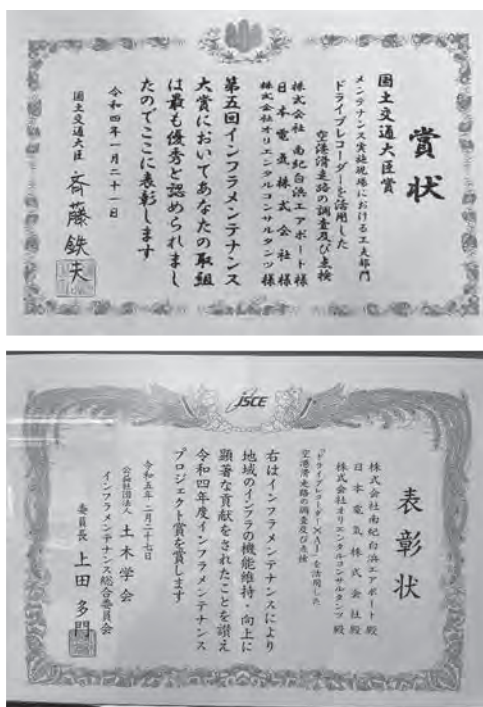 賞状
国土交通大臣賞
メンテナンス実施現場における工夫部門
ドライブレコーダーを活用した
空港滑走路の調査及び点検
株式会社 南紀白浜エアポート様
日本電気株式会社様
株式会社オリエンタルコンサルタンツ様
第五回インフラメンテナンス
大賞においてあなたの取組
は最も優秀と認められまし
たのでここに表彰します
令和四年一月二十一日
国土交通大臣 斉藤鉄夫
JSCE
表彰状
株式会社南紀白浜エアポート殿
日本電気株式会社殿
株式会社オリエンタルコンサルタンツ殿
「ドライブレコーダー×AI」を活用した
空港滑走路の調査及び点検
右はインフラメンテナンスにより
地域のインフラの機能維持・向上に
顕著な貢献をされたことを讃え
令和四年度インフラメンテナンス
プロジェクト賞を賞します
令和五年 二月二十七日
公益社団法人 土木学会
インフラメンテナンス総合委員会
委員長 上田多門